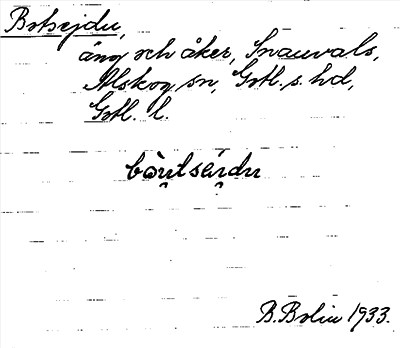 Botsejdu,
äng och åker, Snauvals,
Alskog sn, Gotl. s. hd,
Gotl. l.
B. Bolin 1933.